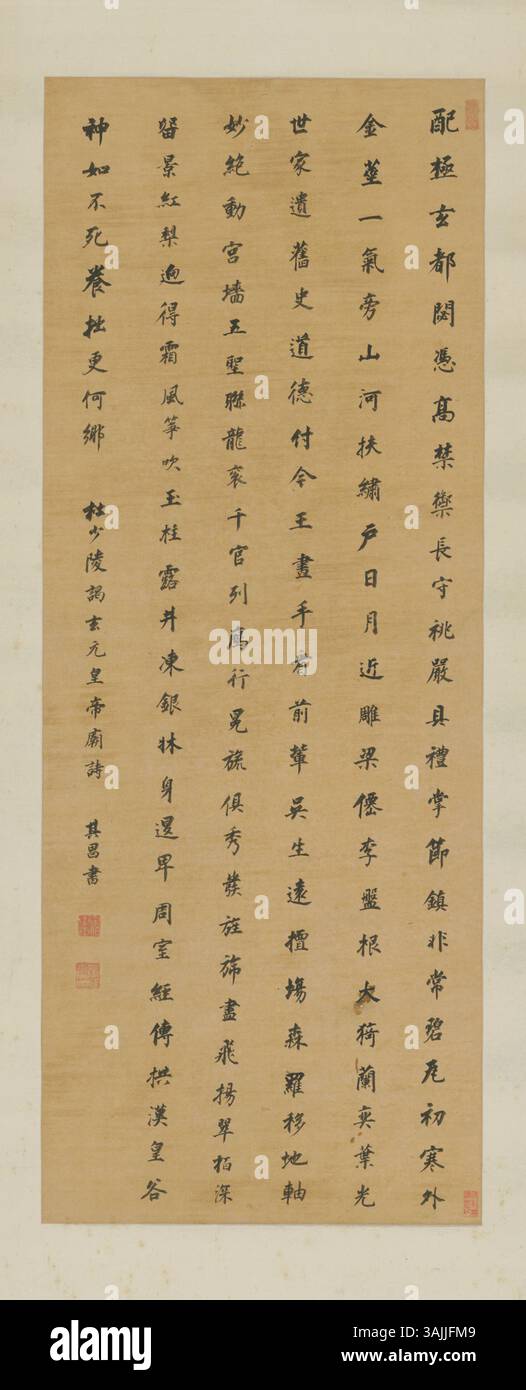 配極玄都閟憑髙禁籞長守祧嚴具禮掌節鎮非常碧瓦初寒外
金莖一氣旁山河扶繡戶日月近雕梁僊李盤根大猗蘭奕葉光
世家遺舊史道德付今王畫手看前輩吳生遠擅場森羅移地軸
妙絕動宮墻五聖聯龍袞千官列鳫行冕旒俱秀發旌旆盡飛揚翠栢深
留景紅梨迥得霜風箏吹玉柱露井凍銀牀身退卑周室經傳拱漢皇谷
神如不死養拙更何鄉 杜少陵謁玄元皇帝廟詩 其昌書
alamy
Image ID: 3AJJFM9
www.alamy.com